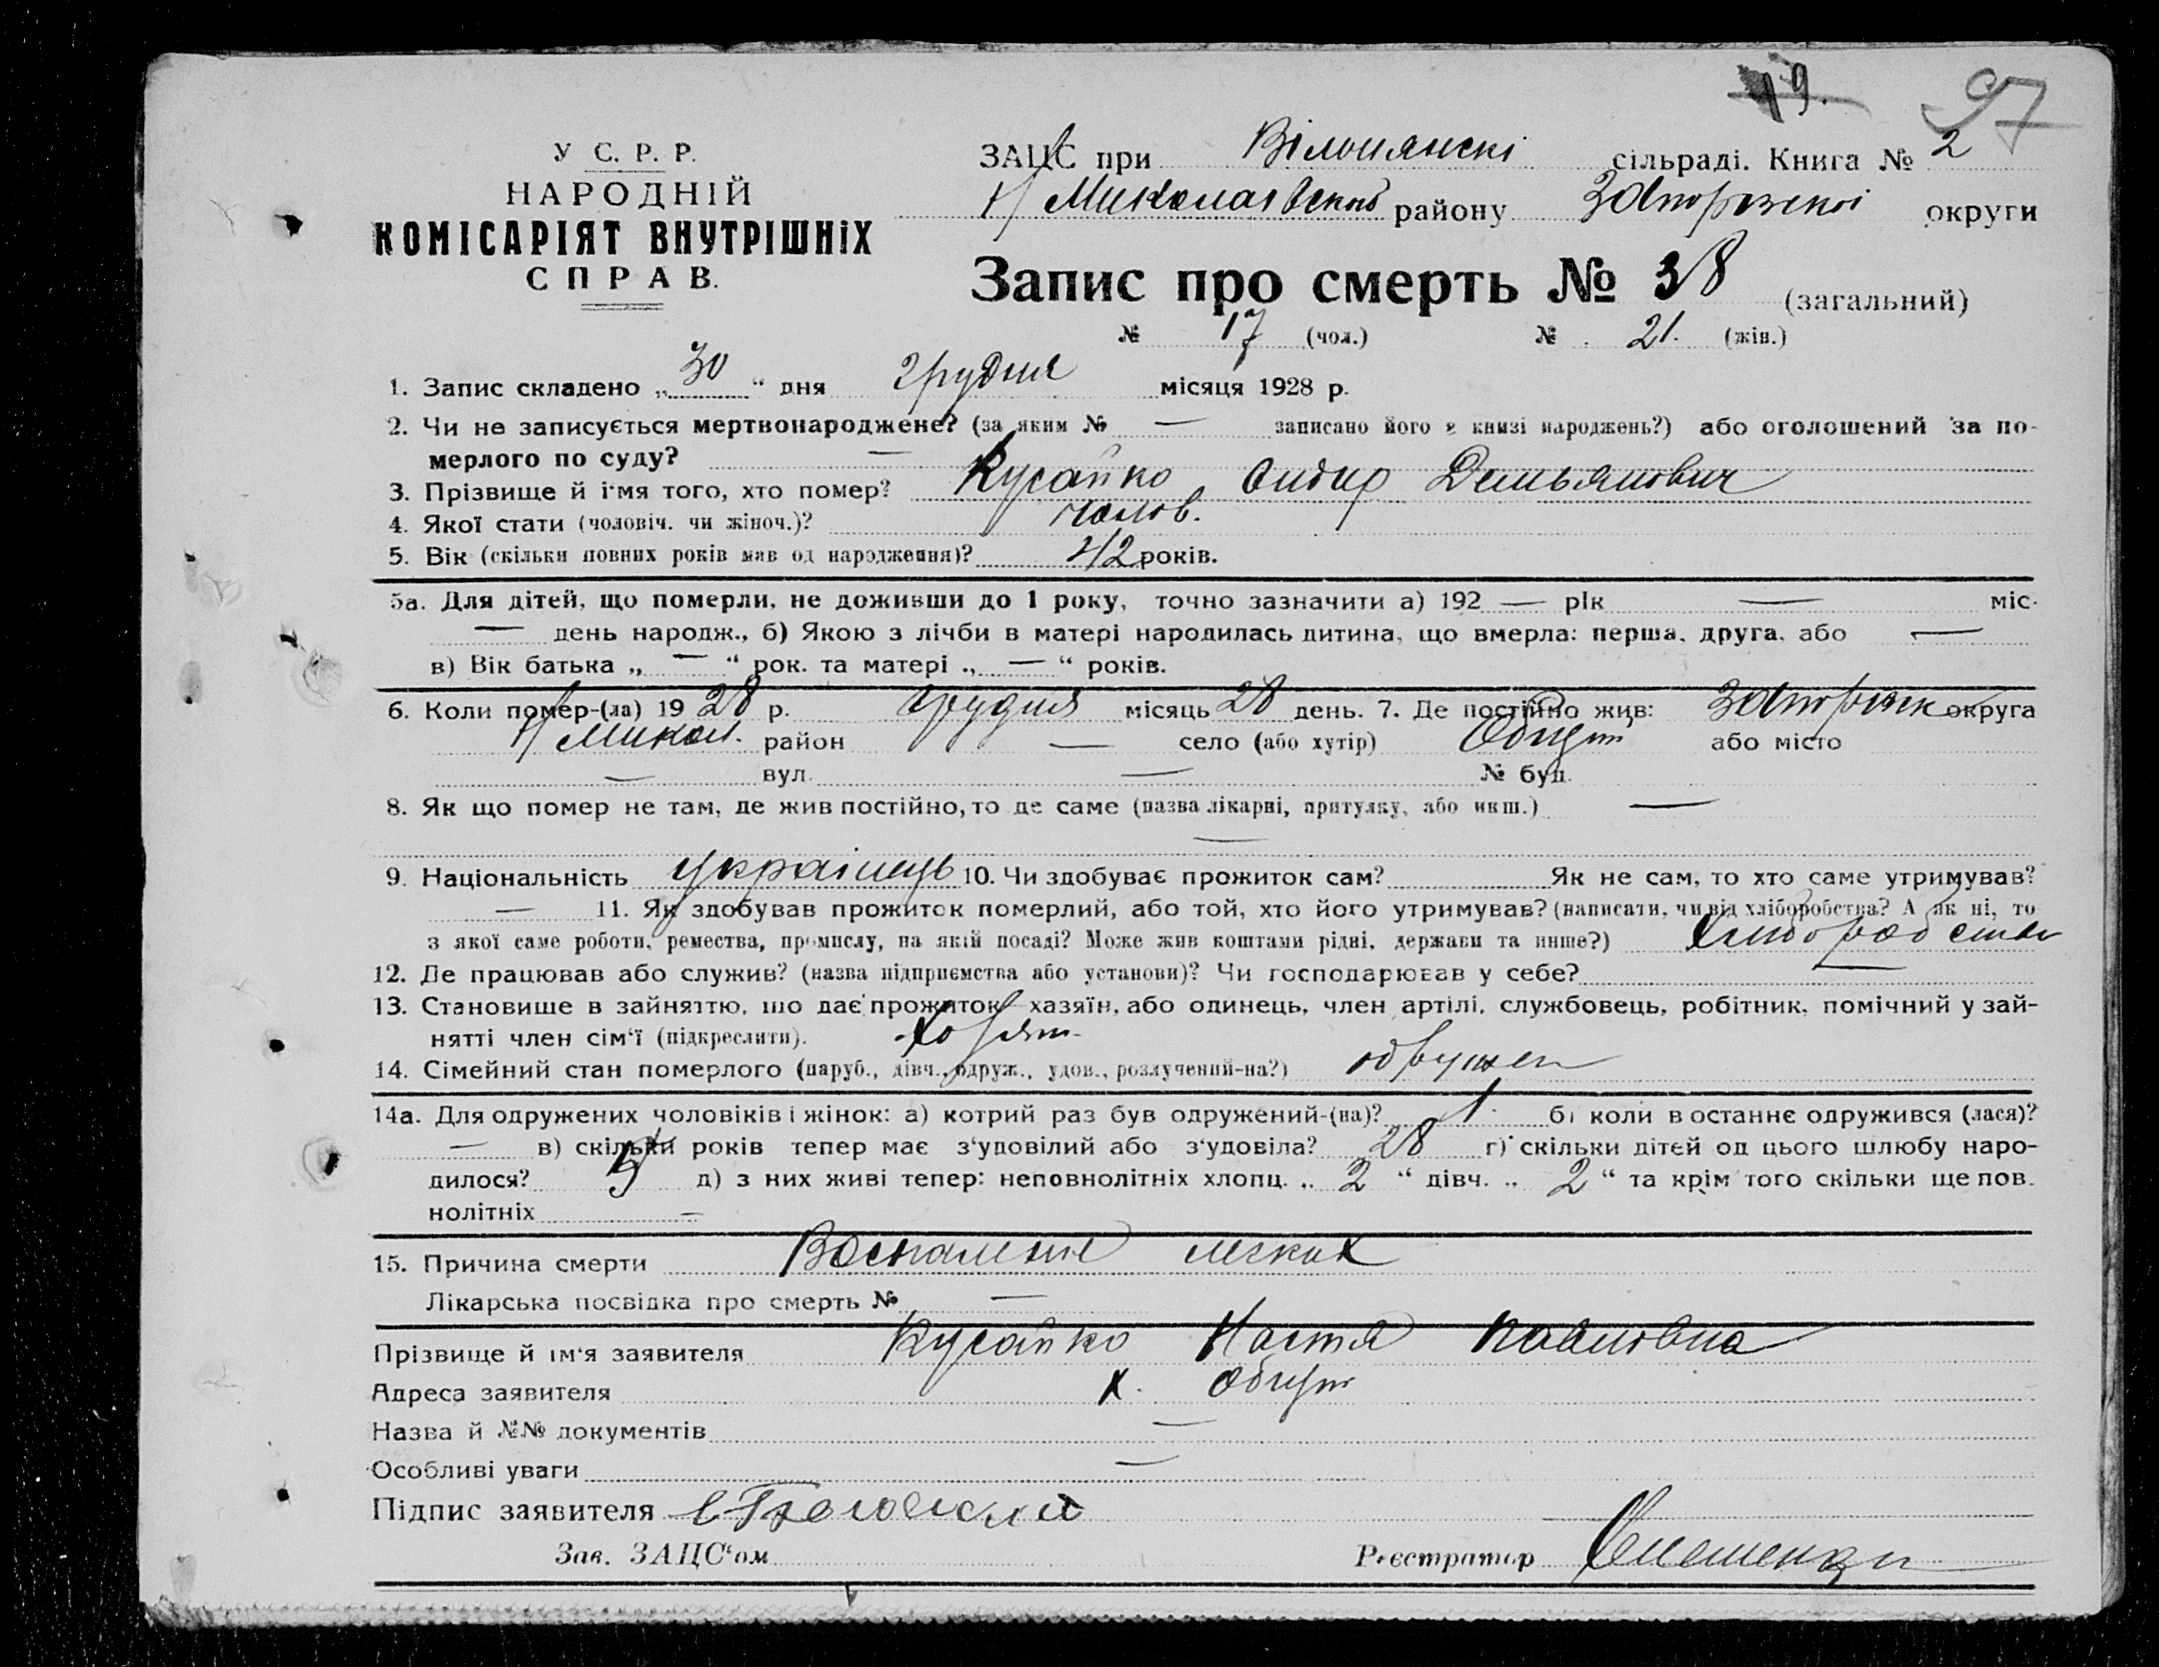 19. 97
У С. Р. Р.
НАРОДНІЙ
КОМІСАРІЯТ ВНУТРІШНІХ
СПРАВ.
ЗАЦС при сільраді. Книга № 2
Н Миколаєвськ району Запорізької округи
Запис про смерть № 38 (загальний)
№ 17 (чол.) № 21. (жін.)
1. Запис складено „ 30 “ дня грудня місяця 1928 р.
2. Чи не записується мертвонароджене? (за яким № — записано його в книзі народжень?) або оголошений за по-
мерлого по суду? —
3. Прізвище й ім'я того, хто помер? Кусайко Сидір Демьянович
4. Якої стати (чоловіч. чи жіноч.)? чолов.
5. Вік (скільки повних років мав од народження)? 42 років.
5а. Для дітей, що померли, не доживши до 1 року, точно зазначити а) 192 — рік — міс.
— день народж., б) Якою з лічби в матері народилась дитина, що вмерла: перша, друга, або —
в) Вік батька „ — “ рок. та матері „ — “ років.
6. Коли помер-(ла) 19 28 р. грудня місяць 28 день. 7. Де постійно жив: Запоріжк округа
Н Микол. район — село (або хутір) або місто
— вул. — № буд.
8. Як що помер не там, де жив постійно, то де саме (назва лікарні, притулку, або инш.) —
—
9. Національність українець 10. Чи здобуває прожиток сам? Як не сам, то хто саме утримував?
— 11. Як здобував прожиток померлий, або той, хто його утримував? (написати, чи від хліборобства? А як ні, то
з якої саме роботи, ремества, промислу, на якій посаді? Може жив коштами рідні, держави та инше?) хліборобство
12. Де працював або служив? (назва підприємства або установи)? Чи господарював у себе? —
13. Становище в зайняттю, що дає прожиток хазяїн, або одинець, член артілі, службовець, робітник, помічний у зай-
нятті член сім'ї (підкреслити). хозяін
14. Сімейний стан померлого (паруб., дівч., одруж., удов., розлучений-на?) одружен
14а. Для одружених чоловіків і жінок: а) котрий раз був одружений-(на)? 1. б) коли востаннє одружився (лася)?
— в) скільки років тепер має з'удовілий або з'удовіла? 28 г) скільки дітей од цього шлюбу наро-
дилося? д) з них живі тепер: неповнолітніх хлопц. „ 2 “ дівч. „ 2 “ та крім того скільки ще пов.
нолітніх —
15. Причина смерти Воспаление легких
Лікарська посвідка про смерть № —
Прізвище й ім'я заявителя Кусайко Настя Павловна
Адреса заявителя х.
Назва й №№ документів —
Особливі уваги —
Підпис заявителя
Зав. ЗАЦС'ом Реєстратор